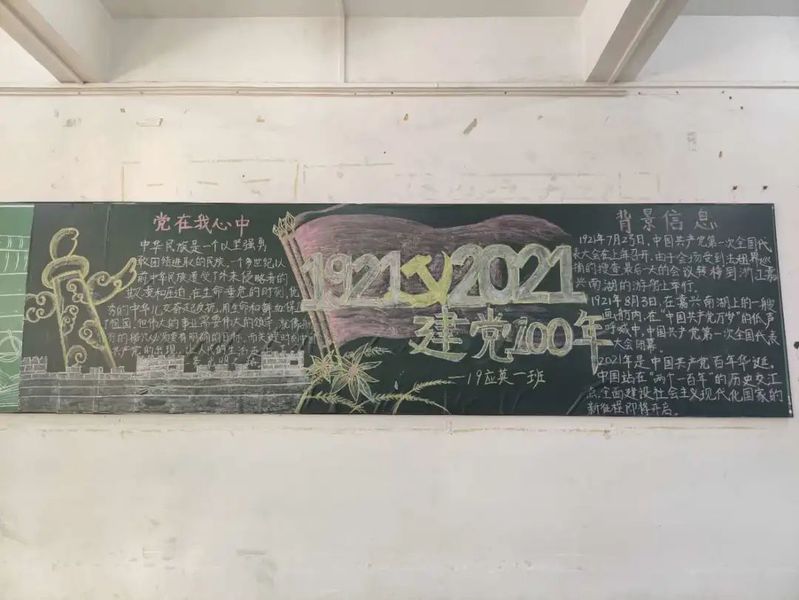 党在我心中
中华民族是一个以坚强勇
敢团结进取的民族,一个多世纪以
前中华民族遭受了外来侵略者的
在生命垂危的时刻,优
秀的中华儿女奋起反抗,用生命和鲜血保
了祖国,但伟大的事业需要伟大的领导
明确的目标
共产党的出现,让人民的生活
1921 2021
建党100年
——19应英一班
背景信息
1921年7月23日,中国共产党第一次全国代
表大会在上海召开,由于会场受到法租界巡
捕的搜查最后一天的会议转移到浙江嘉
兴南湖的游船上举行。
1921年8月3日,在嘉兴南湖上的一艘
画舫内,在“中国共产党万岁”的低声
呼喊中,中国共产党第一次全国代表
大会闭幕
2021年是中国共产党百年华诞。
中国站在“两个一百年”的历史交汇
点,全面建设社会主义现代化国家的
新征程即将开启。